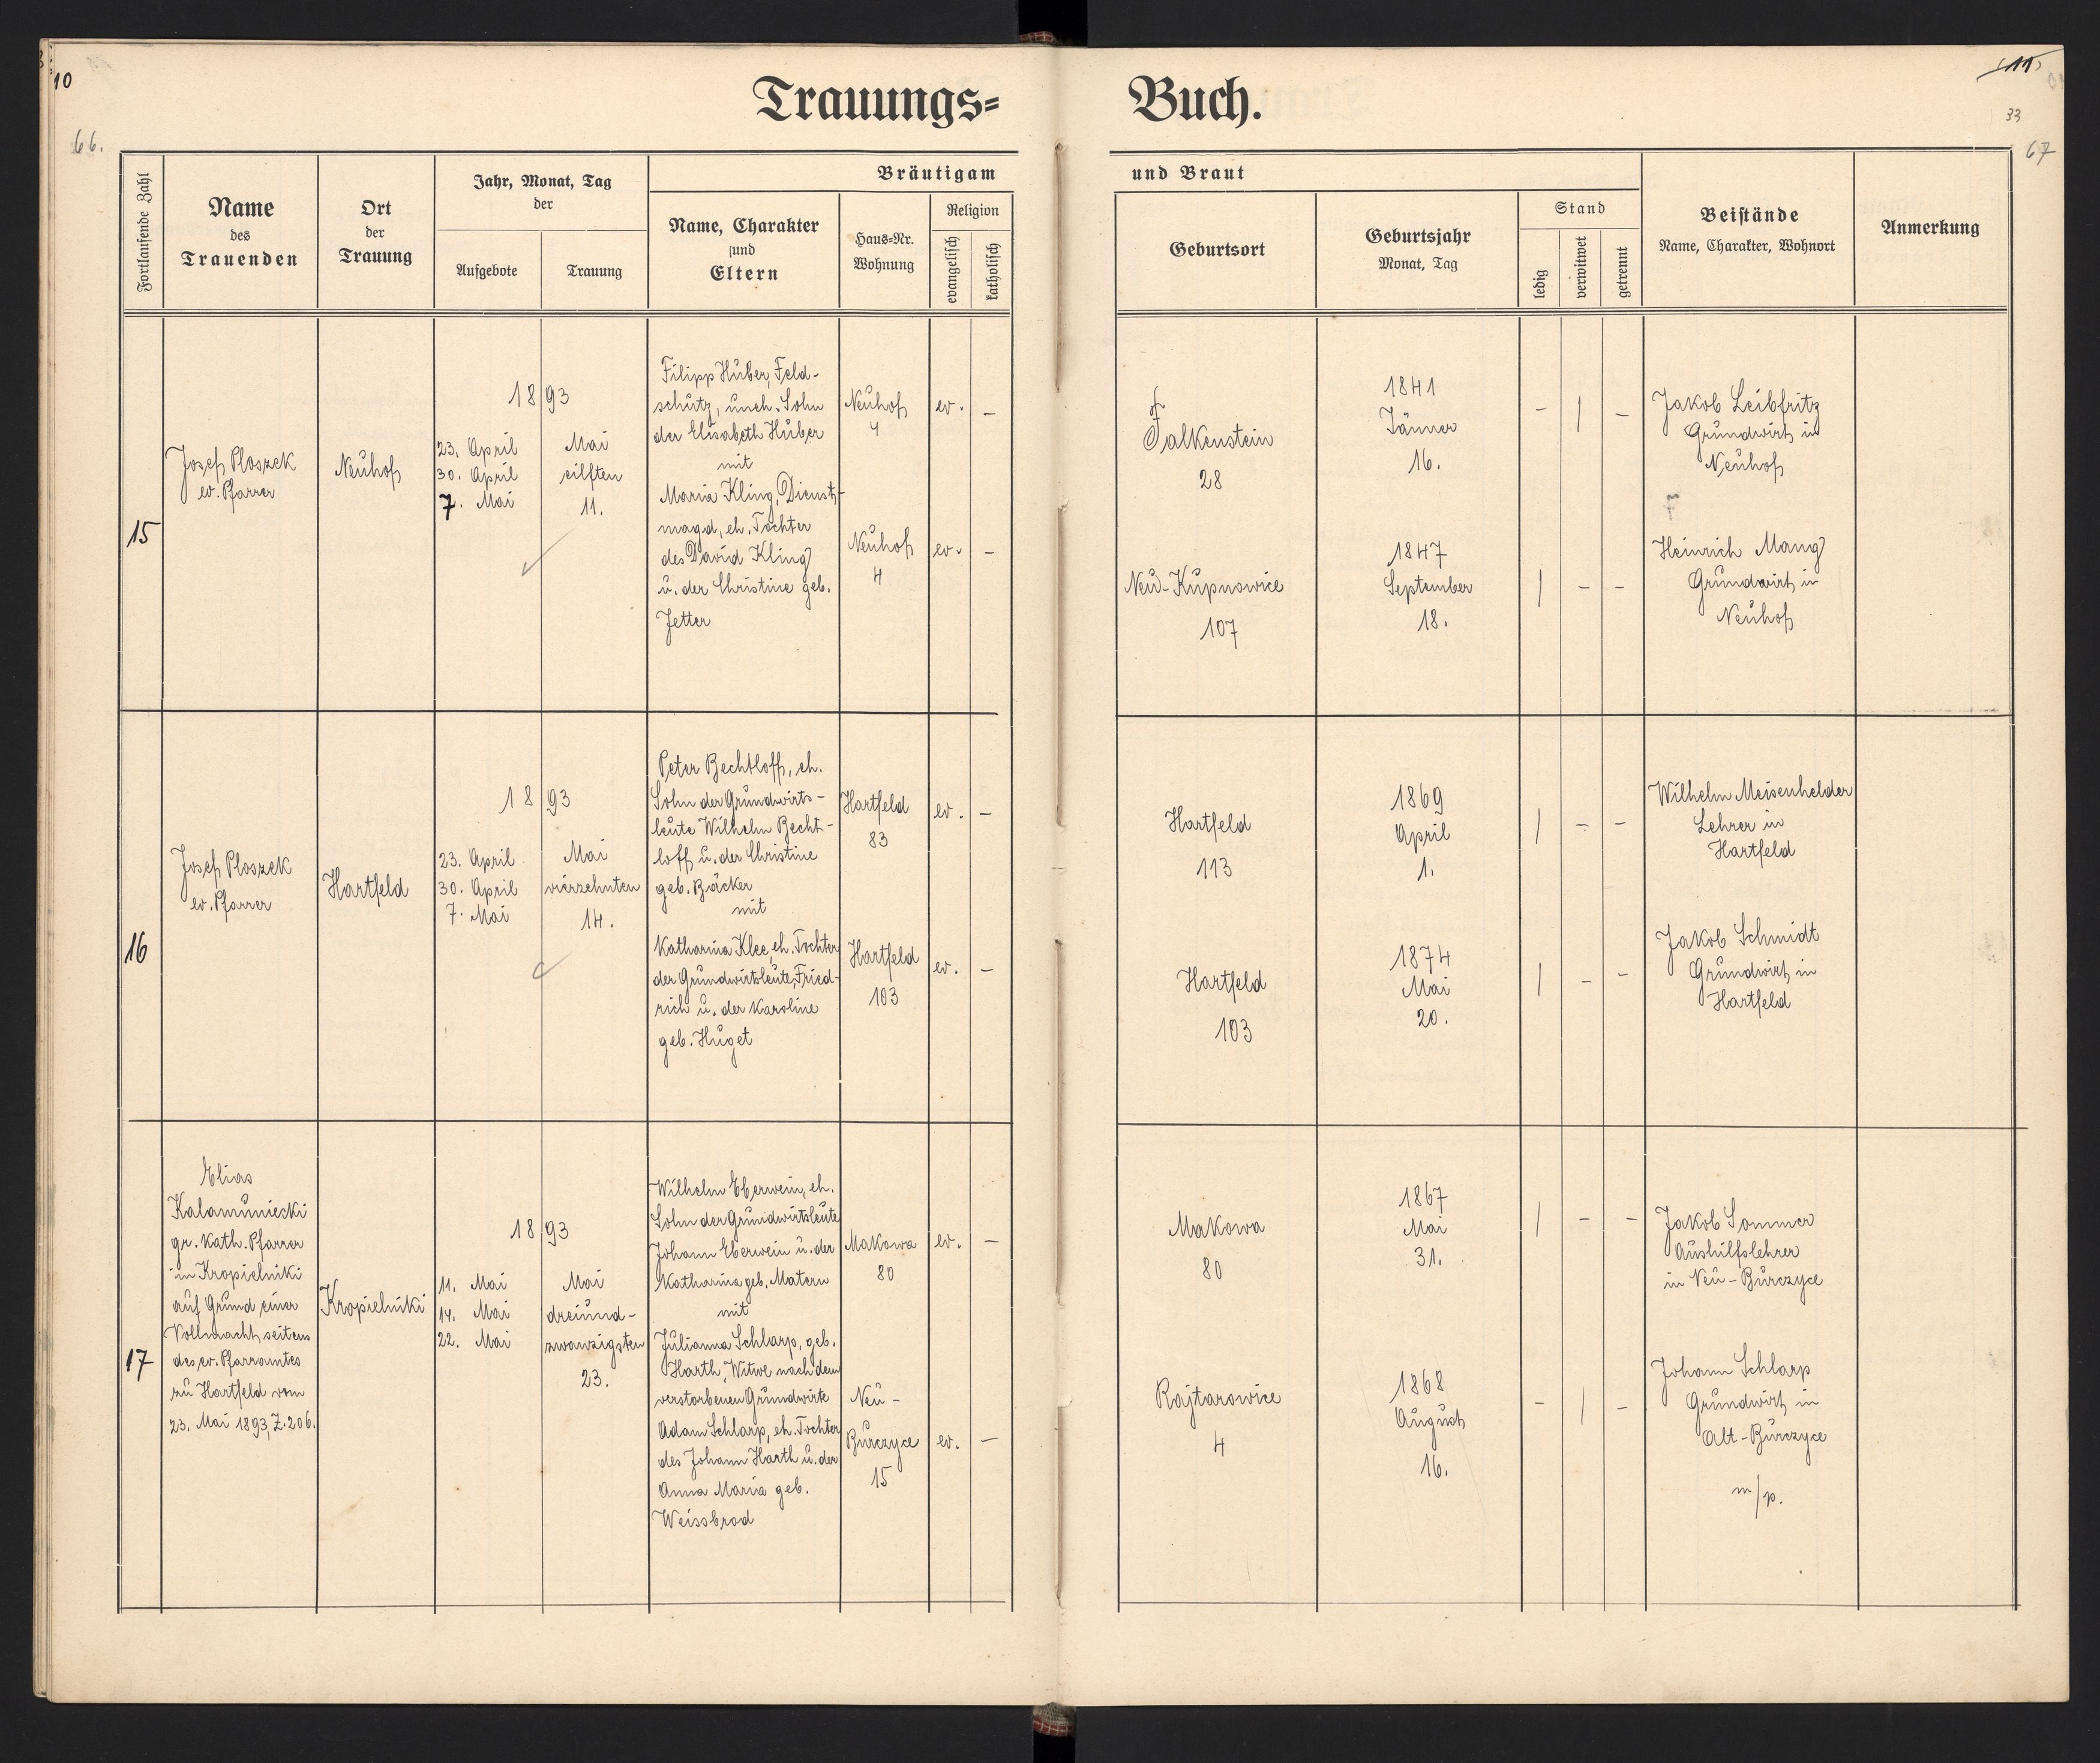 10
66.
Trauungs=
Buch.
11
33
67
Fortlaufende Zahl
Name
des
Trauenden
Ort
der
Trauung
Jahr, Monat, Tag
der
Aufgebote
Trauung
Bräutigam
Name, Charakter
und
Eltern
Haus=Nr.
Wohnung
Religion
evangelisch
katholisch
und Braut
Geburtsort
Geburtsjahr
Monat, Tag
Stand
ledig
verwitwet
getrennt
Beistände
Name, Charakter, Wohnort
Anmerkung
15
Josef Ploszek
ev. Pfarrer
Neuhof
1893
23. April
30. April
7. Mai
Mai
eilften
11.
Filipp Huber, Feld-
schütz, uneh. Sohn
der Elisabeth Huber
mit
Maria Kling, Dienst-
magd, eh. Tochter
des David Kling
u. der Christine geb.
Jetter
Neuhof
4
ev. –
Neuhof
4
ev. –
Falkenstein
28
1841
Jänner
16.
– | –
Jakob Leibfritz
Grundwirt in
Neuhof
Neu-Kupnowice
107
1847
September
18.
| – –
Heinrich Mang
Grundwirt in
Neuhof
16
Josef Ploszek
ev. Pfarrer
Hartfeld
1893
23. April
30. April
7. Mai
Mai
vierzehnten
14.
Peter Bechtloff, eh.
Sohn der Grundwirts-
leute Wilhelm Becht-
loff u. der Christine
geb. Bäcker
mit
Katharina Klee, eh. Tochter
der Grundwirtsleute, Fried-
rich u. der Karoline
geb. Huget
Hartfeld
83
ev. –
Hartfeld
103
ev. –
Hartfeld
113
1869
April
1.
| – –
Wilhelm Meisenhelder
Lehrer in
Hartfeld
Hartfeld
103
1874
Mai
20.
| – –
Jakob Schmidt
Grundwirt in
Hartfeld
17
Elias
Kalamuniecki
gr. kath. Pfarrer
in Kropielniki
auf Grund einer
Vollmacht seitens
des ev. Pfarramtes
zu Hartfeld vom
23. Mai 1893, Z. 206.
Kropielniki
1893
11. Mai
14. Mai
22. Mai
Mai
dreiund-
zwanzigsten
23.
Wilhelm Eberwein, eh.
Sohn der Grundwirtsleute
Johann Eberwein u. der
Katharina geb. Matern
mit
Julianna Schlarp, geb.
Harth, Witwe nach dem
verstorbenen Grundwirte
Adam Schlarp, eh. Tochter
des Johann Harth u. der
Anna Maria geb.
Weissbrod
Makowa
80
ev. –
Neu-
Burczyce
15
ev. –
Makowa
80
1867
Mai
31.
| – –
Jakob Sommer
Aushilfslehrer
in Neu-Burczyce
Rajtarowice
4
1868
August
16.
– | –
Johann Schlarp
Grundwirt in
Alt-Burczyce
m/p.